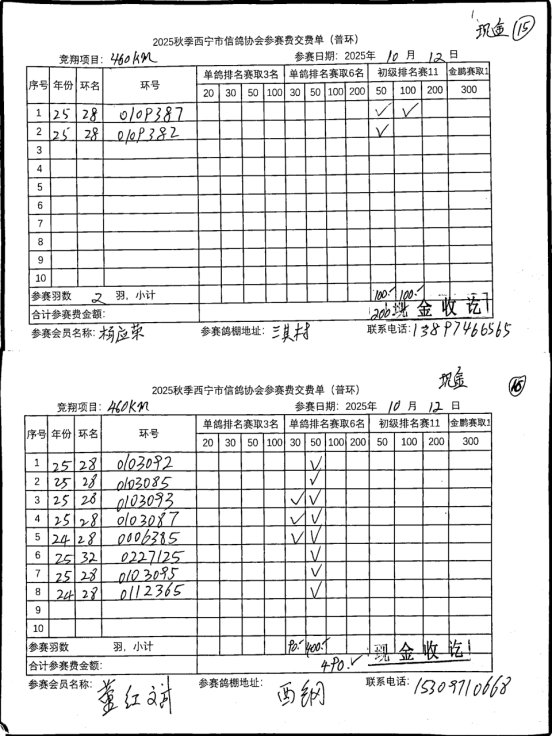 现金 15
2025秋季西宁市信鸽协会参赛费交费单（普环）
竞翔项目：460KM 参赛日期：2025年 10 月 12 日
序号 年份 环名 环号 单鸽排名赛取3名 单鸽排名赛取6名 初级排名赛11 金鹏赛取1
20 30 50 100 30 50 100 200 50 100 200 300
1 25 28 0109387 ✓ ✓
2 25 28 0109382 ✓
3
4
5
6
7
8
9
10
参赛羽数 2 羽，小计 100.- 100.-
合计参赛费金额： 200 现金收讫
参赛会员名称：杨应荣 参赛鸽棚地址： 联系电话：13897466565
现金 16
2025秋季西宁市信鸽协会参赛费交费单（普环）
竞翔项目：460KM 参赛日期：2025年 10 月 12 日
序号 年份 环名 环号 单鸽排名赛取3名 单鸽排名赛取6名 初级排名赛11 金鹏赛取1
20 30 50 100 30 50 100 200 50 100 200 300
1 25 28 0103092 ✓
2 25 28 0103085 ✓
3 25 28 0103093 ✓ ✓
4 25 28 0103087 ✓ ✓
5 24 28 0006385 ✓ ✓
6 25 32 0227125 ✓
7 25 28 0103095 ✓
8 24 28 0112365 ✓
9
10
参赛羽数 羽，小计 90.- 400.-
合计参赛费金额： 490.✓ 现金收讫
参赛会员名称：董红 参赛鸽棚地址：西钢 联系电话：15309710668